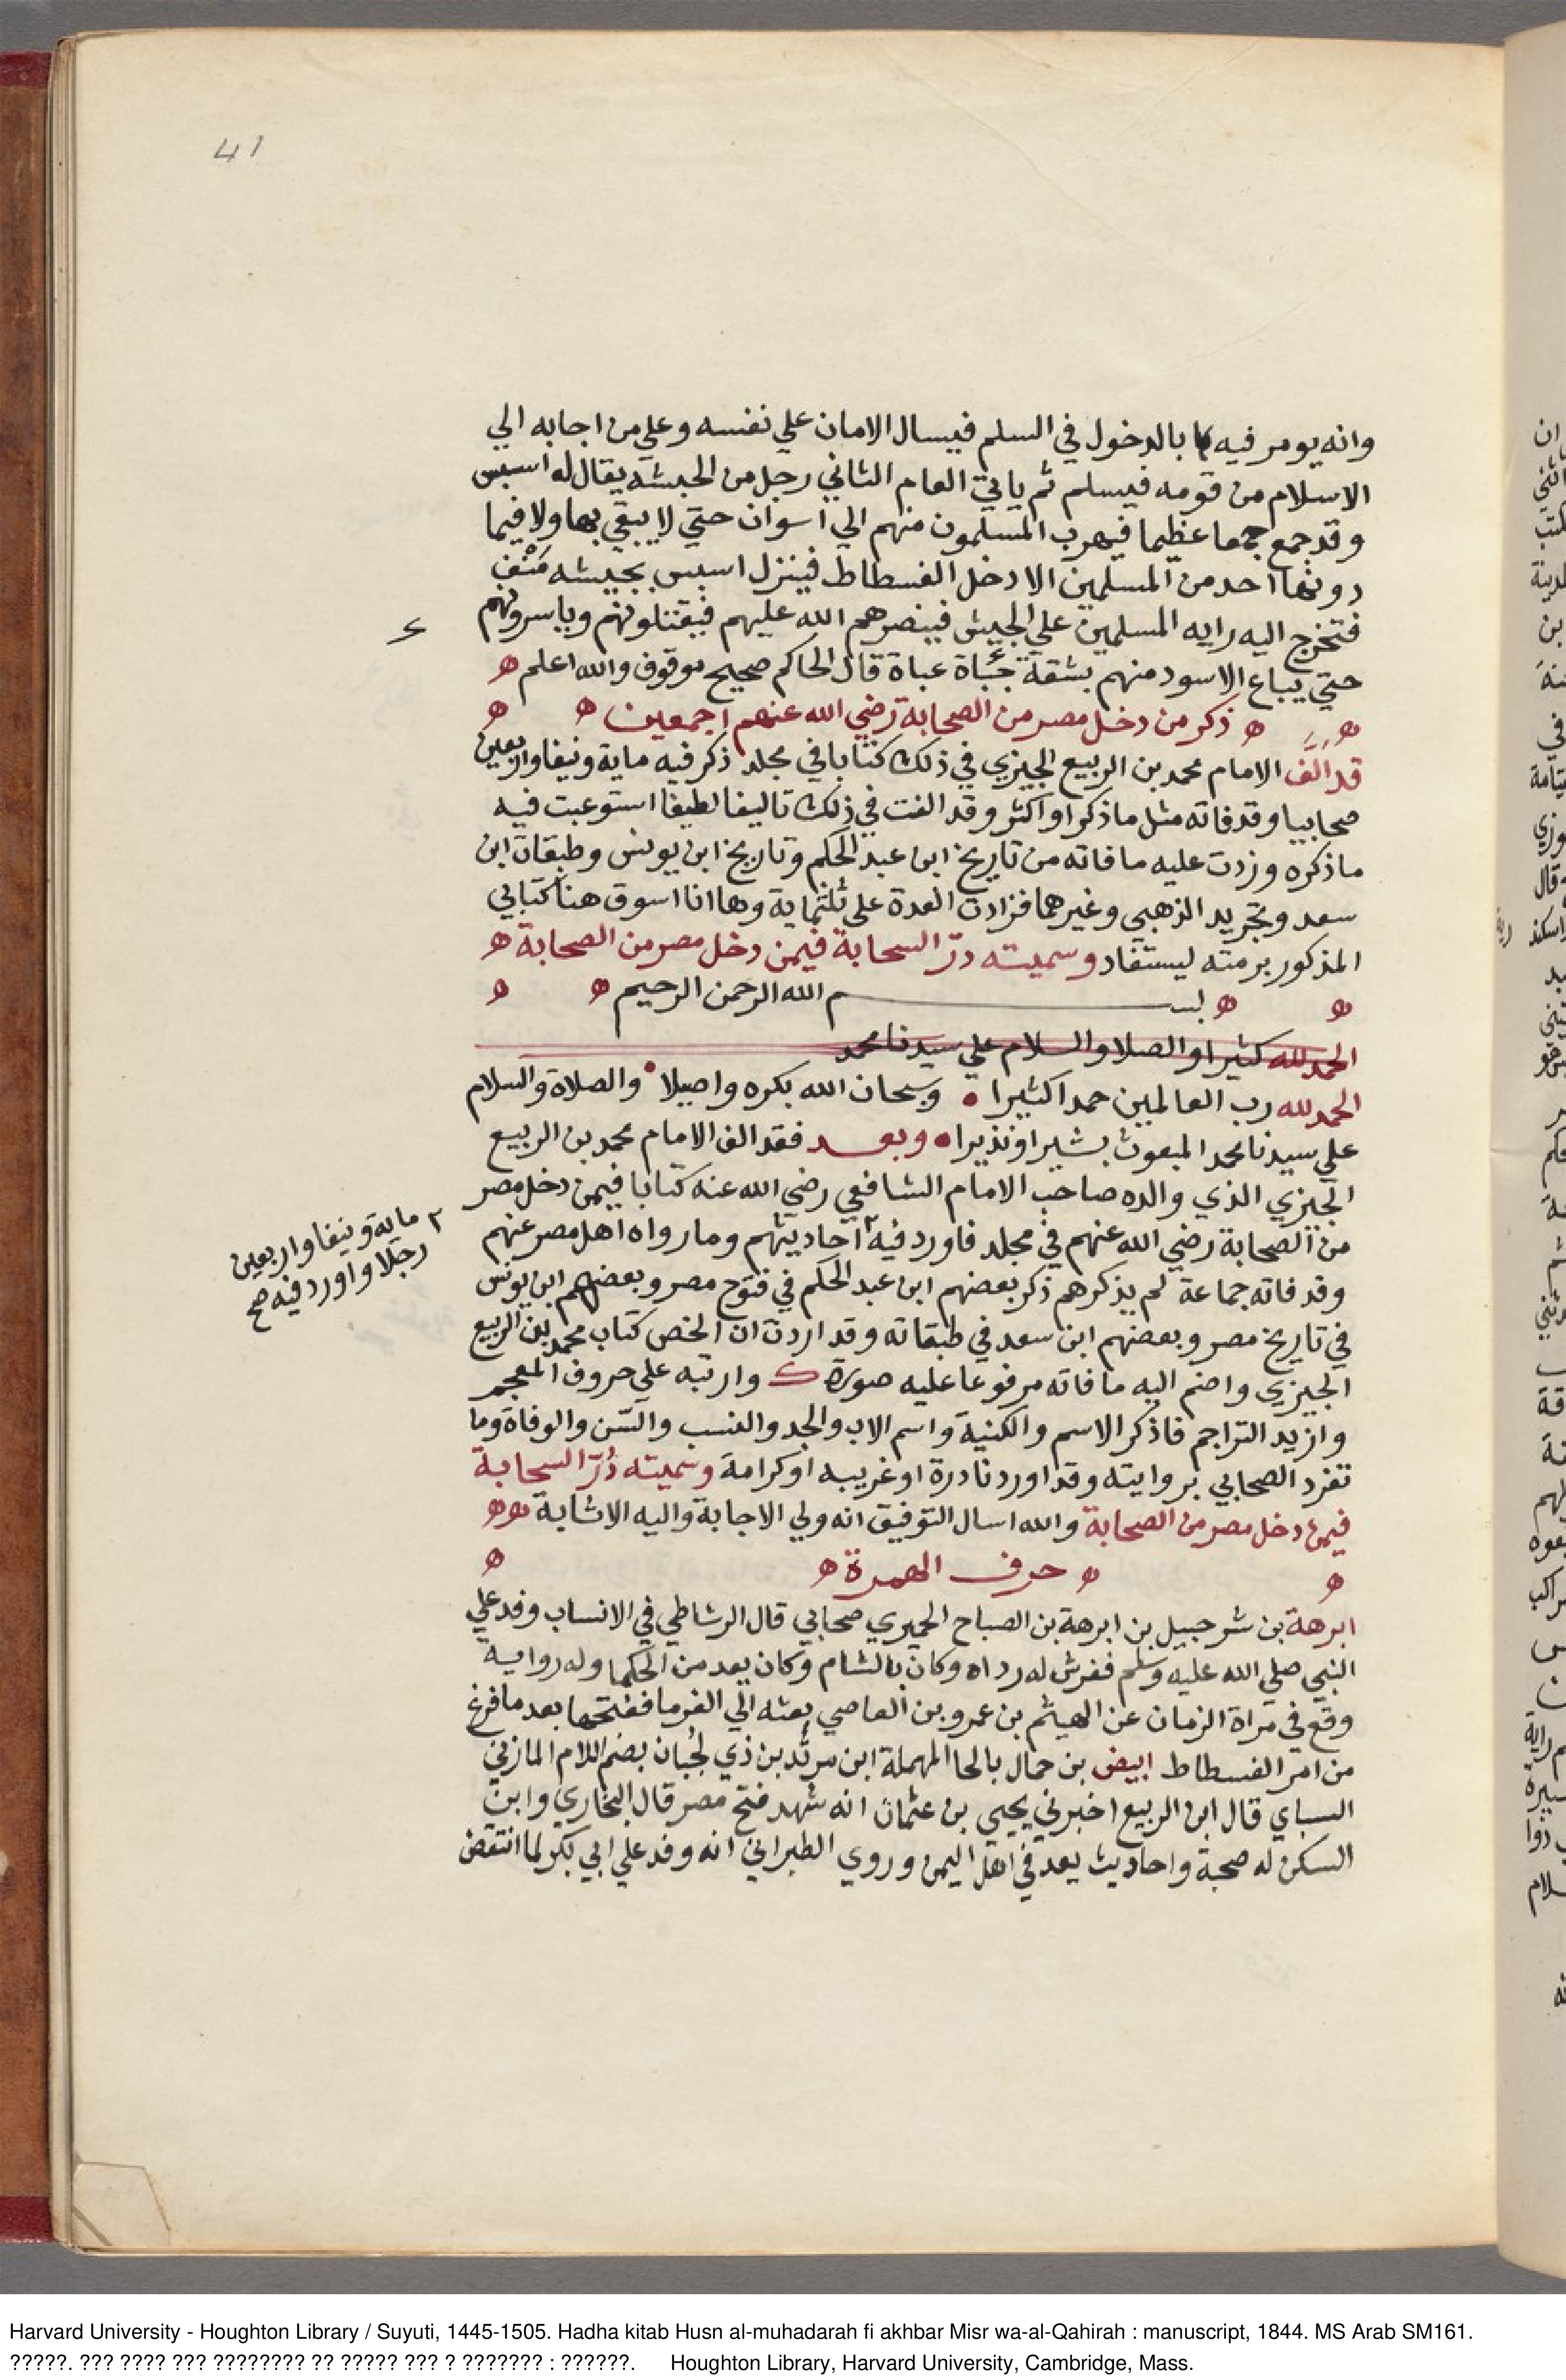 41
وانه يومر فيه بالدخول في السلم فيسال الامان علي نفسه وعلي من اجابه الي
الاسلام من قومه فيسلم ثم ياتي العام الثاني رجل من الحبشه يقال له اسبس
وقد جمع جمعا عظيما فيهرب المسلمون منهم الي اسوان حتي لا يبقي بها ولا فيما
دونها احد من المسلمين الا دخل الفسطاط فينزل اسبس بجيشه منف
فتخرج اليه رايه المسلمين علي الجيش فينصرهم الله عليهم فيقتلونهم وياسرونهم
حتي يباع الاسود منهم بشقة عباة قال الحاكم صحيح موقوف والله اعلم ه
ه ه ذكر من دخل مصر من الصحابة رضي الله عنهم اجمعين ه ه
قد الَّف الامام محمد بن الربيع الجيزي في ذلك كتابا في مجلد ذكر فيه ماية ونيفا واربعين
صحابيا وقد فاته مثل ما ذكر او اكثر وقد الفت في ذلك تاليفا لطيفا استوعبت فيه
ما ذكره وزدت عليه ما فاته من تاريخ ابن عبد الحكم وتاريخ ابن يونس وطبقات ابن
سعد وتجريد الذهبي وغيرهما فزادت العدة علي ثلثماية وها انا اسوق هنا كتابي
المذكور برمته ليستفاد وسميته درّ السحابة فيمن دخل مصر من الصحابة ه
ه ه بسم الله الرحمن الرحيم ه ه
الحمد لله كثيرا والصلا والسلام علي سيدنا محمد
الحمد لله رب العالمين حمدا كثيرا • وسبحان الله بكره واصيلا • والصلاة والسلام
علي سيدنا محمد المبعوث بشيرا ونذيرا • وبعد فقد الف الامام محمد بن الربيع
الجيزي الذي والده صاحب الامام الشافعي رضي الله عنه كتابا فيمن دخل مصر
من الصحابة رضي الله عنهم في مجلد فاورد فيه ٢ احاديثهم وما رواه اهل مصر عنهم
٢ ماية ونيفا واربعين
رجلا واورد فيه صح
وقد فاته جماعة لم يذكرهم ذكر بعضهم ابن عبد الحكم في فتوح مصر وبعضهم ابن يونس
في تاريخ مصر وبعضهم ابن سعد في طبقاته وقد اردت ان الخص كتاب محمد بن الربيع
الجيزي واضم اليه ما فاته مرفوعا عليه صورة ك وارتبه علي حروف المعجم
وازيد التراجم فاذكر الاسم والكنية واسم الاب والجد والنسب والسّن والوفاة وما
تفرد الصحابي بروايته وقد اورد نادرة او غريبه او كرامة وسميته دُرّ السحابة
فيمن دخل مصر من الصحابة والله اسال التوفيق انه ولي الاجابة واليه الاثابة ه ه
ه ه حرف الهمزة ه ه
ابرهة بن شرحبيل بن ابرهة بن الصباح الحميري صحابي قال الرشاطي في الانساب وفد علي
النبي صلي الله عليه وسلم ففرش له رداه وكان بالشام وكان يعد من الحكما وله رواية
وقع في مراة الزمان عن الهيثم بن عمرو بن العاصي بعثه الي الفرما ففتحها بعد ما فرغ
من امر الفسطاط ابيض بن حمال بالحا المهملة ابن مرثد بن ذي لُحْيان بضم اللام المازني
السباي قال ابن الربيع اخبرني يحيي بن عثمان انه شهد فتح مصر قال البخاري وابن
السكن له صحبة واحاديث يعد في اهل اليمن وروي الطبراني انه وفد علي ابي بكر لما انتقض
Harvard University - Houghton Library / Suyuti, 1445-1505. Hadha kitab Husn al-muhadarah fi akhbar Misr wa-al-Qahirah : manuscript, 1844. MS Arab SM161.
?????. ??? ???? ??? ???????? ?? ????? ??? ? ??????? : ??????. Houghton Library, Harvard University, Cambridge, Mass.